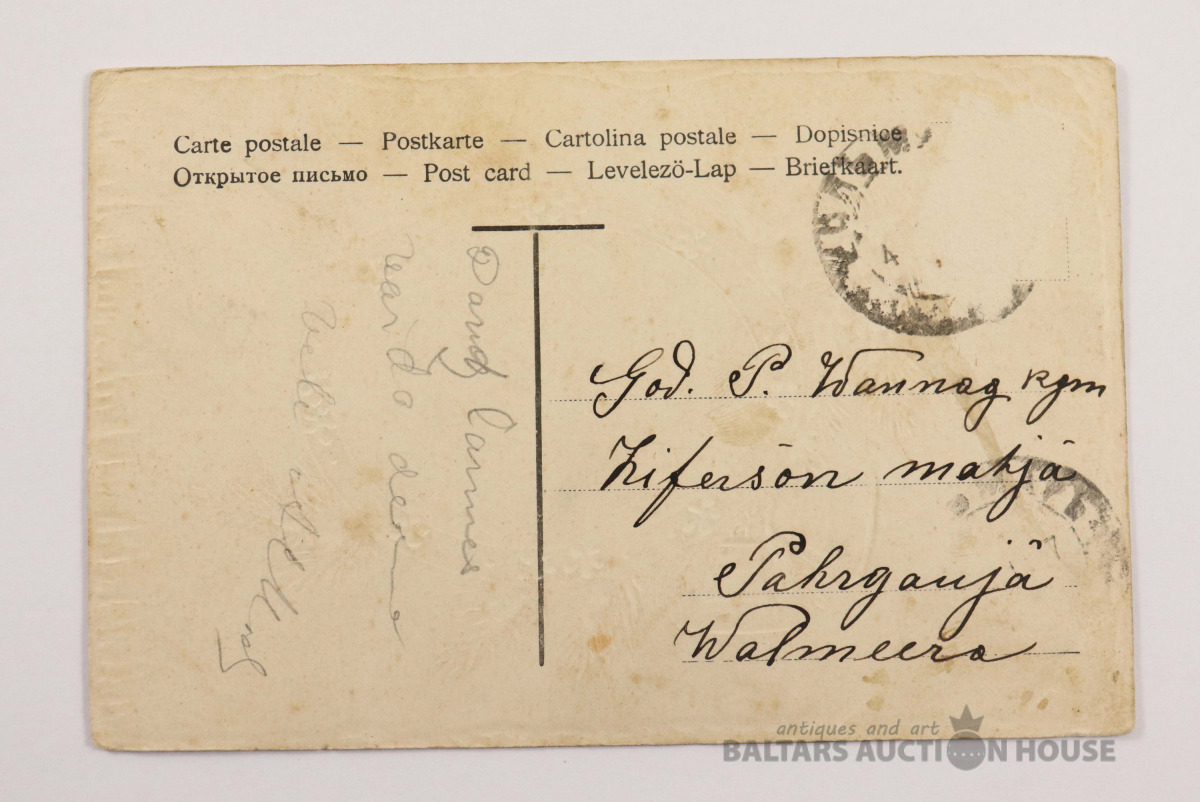 Carte postale — Postkarte — Cartolina postale — Dopisnice
Открытое письмо — Post card — Levelezö-Lap — Briefkaart.
Daudz laimes
vārda deena
God. P. Wannag kgm
Ziferson mahjā
Pahrgaujā
Walmeera
antiques and art
BALTARS AUCTION HOUSE